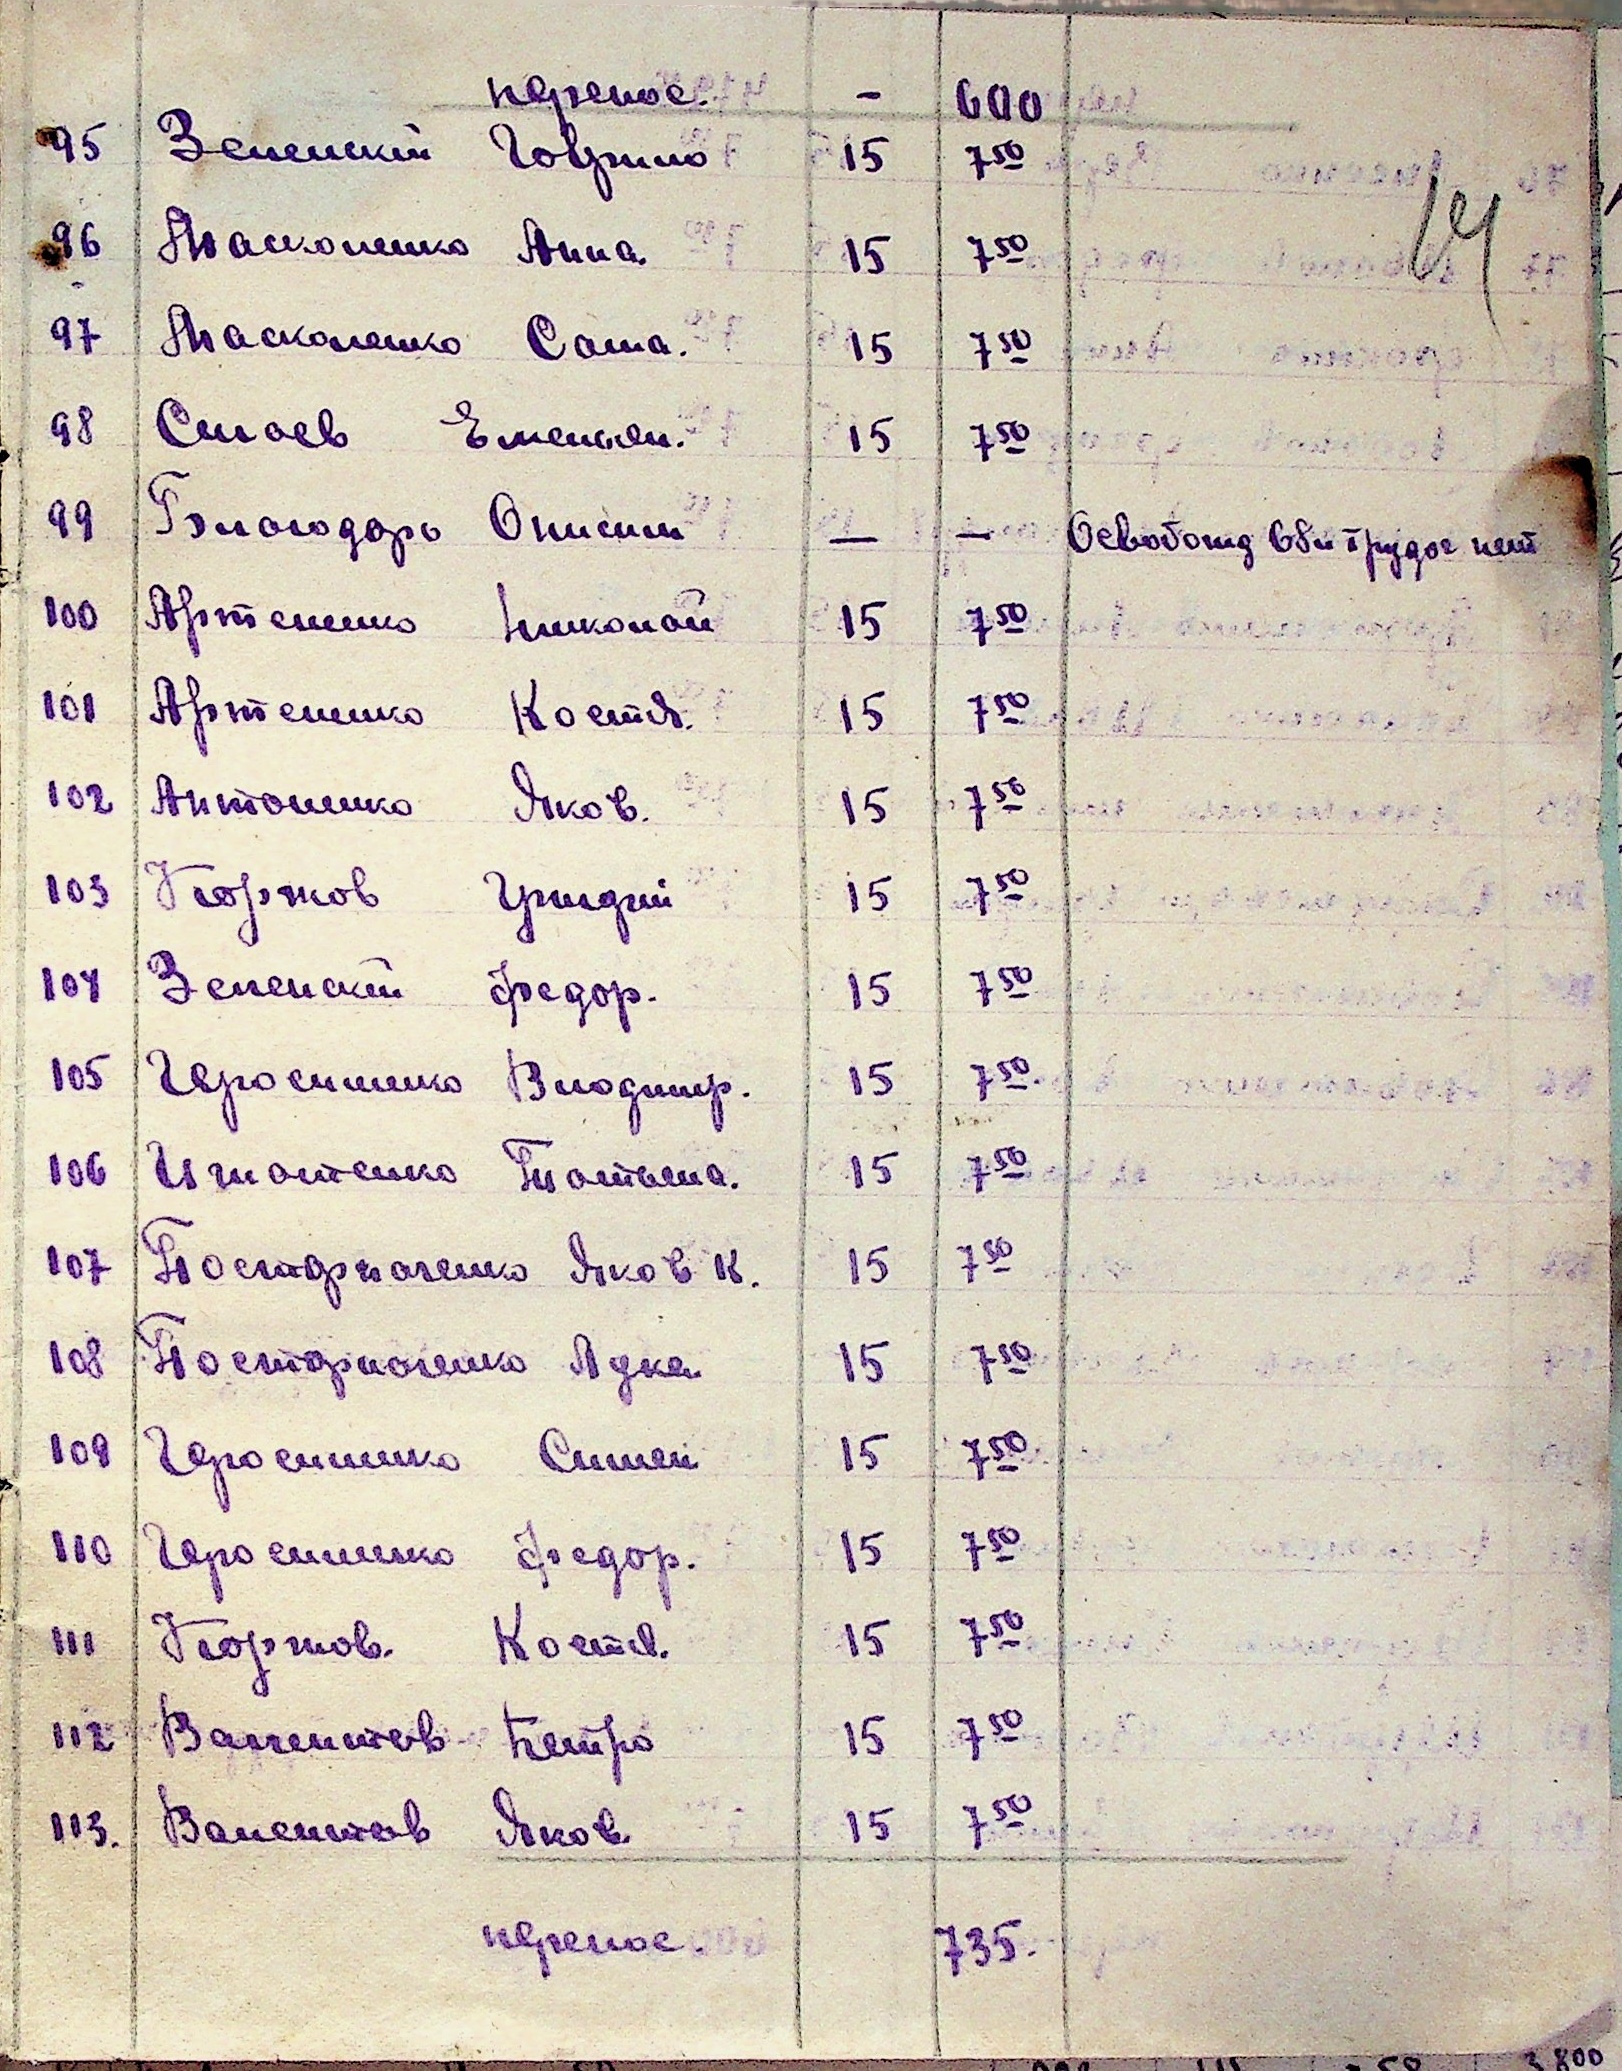 перенос. - 600
95 Зеленский Говрило 15 7 50
96 Москоленко Анна. 15 7 50
97 Москоленко Саша. 15 7 50
98 Силоев Емельян. 15 7 50
99 Благодарь Онисим — — Освобожд нет
100 Артеменко Николай 15 7 50
101 Артеменко Костя. 15 7 50
102 Антоненко Яков. 15 7 50
103 Коржов 15 7 50
104 Зеленский Федор. 15 7 50
105 Герасименко Владимир. 15 7 50
106 Игнотенко Татьяна. 15 7 50
107 Яков К. 15 7 50
108 15 7 50
109 Герасименко Симен 15 7 50
110 Герасименко Федор. 15 7 50
111 Коржов. Костя. 15 7 50
112 Валентов Петро 15 7 50
113. Валентов Яков 15 7 50
перенос. 735.